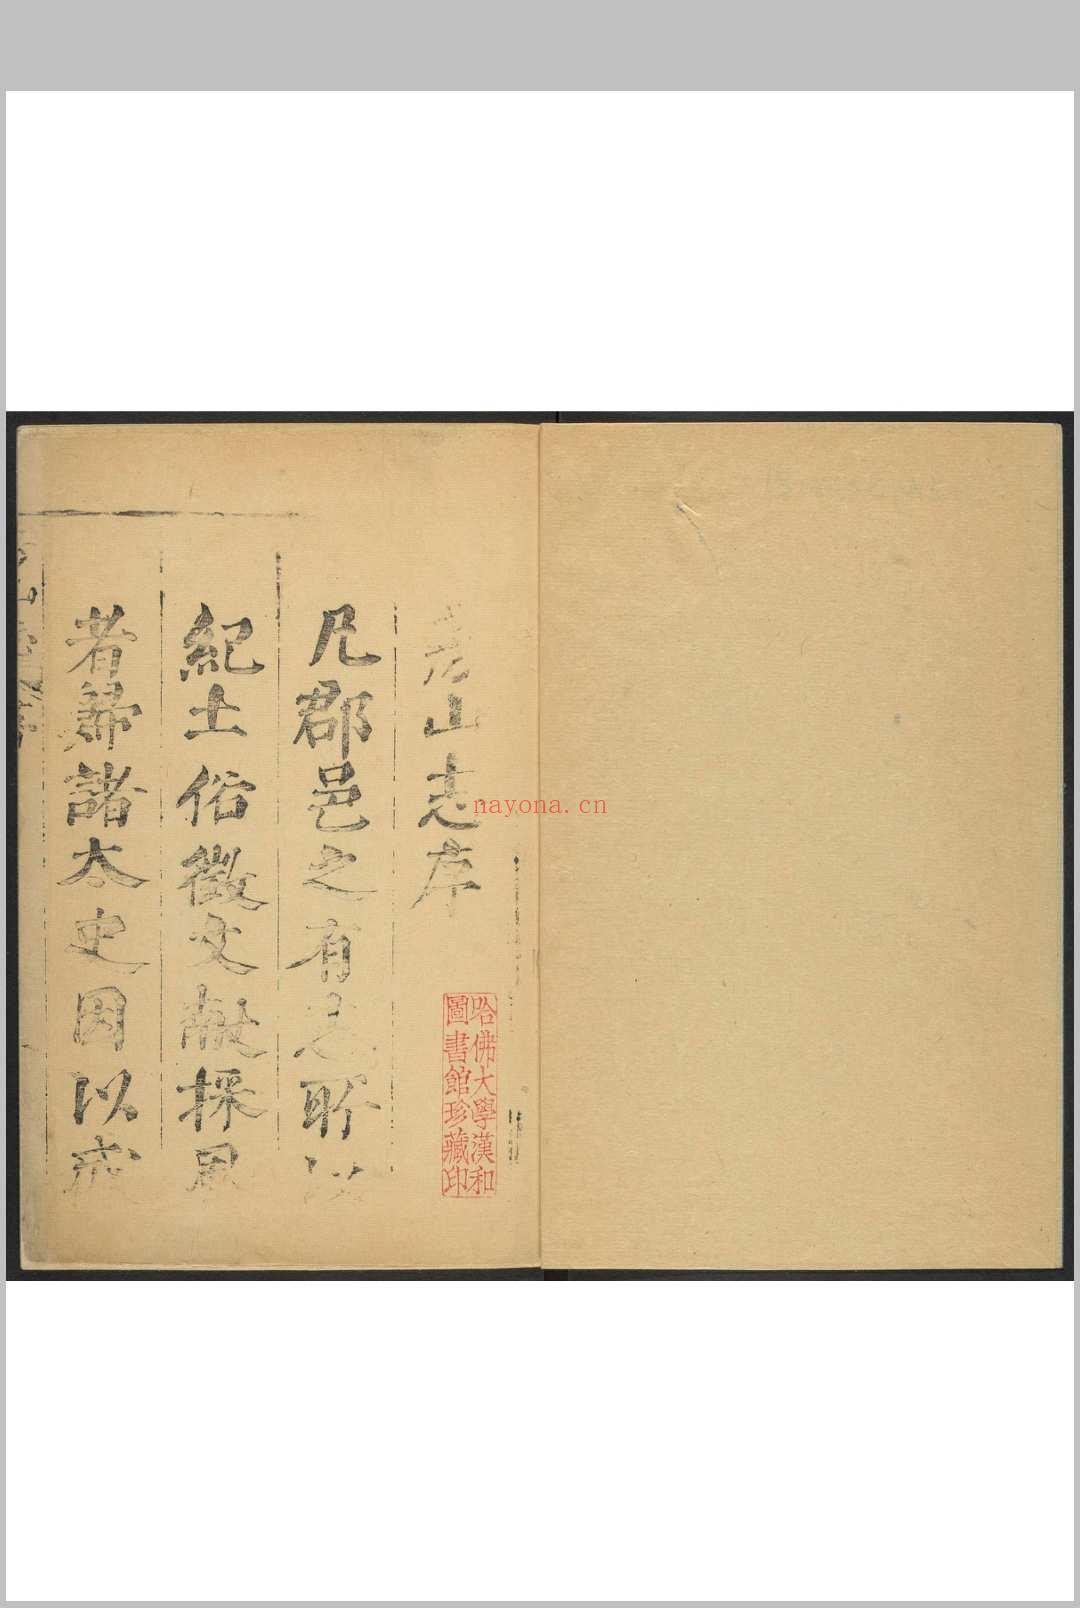 山志序
凡郡邑之有志所以
紀土俗徵文獻採風
者歸諸太史因以戒
哈佛大學漢和
圖書館珍藏印
nayona.cn